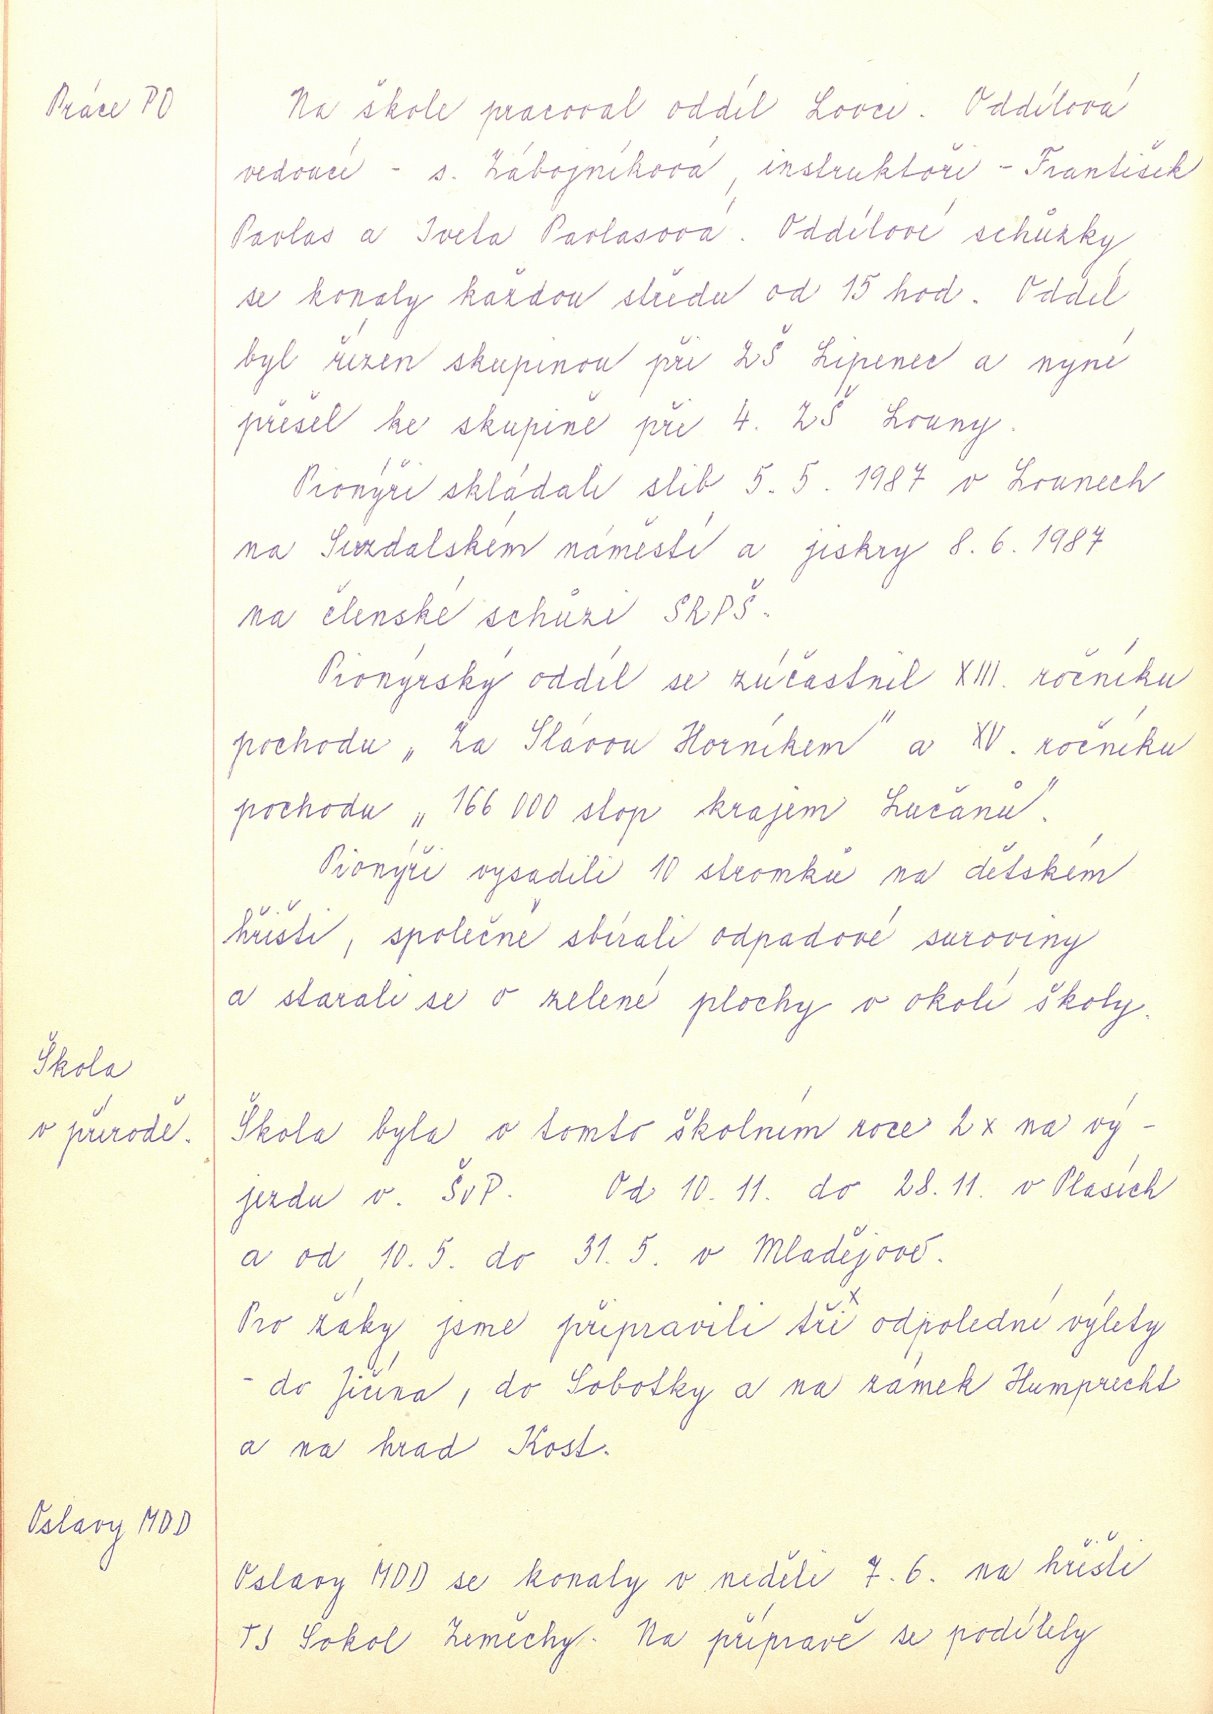 Práce PO
Na škole pracoval oddíl Lovci. Oddílová
vedoucí - s. Zábojníková, instruktoři - František
Pavlas a Iveta Pavlasová. Oddílové schůzky
se konaly každou středu od 15 hod. Oddíl
byl řízen skupinou při ZŠ Lipenec a nyní
přešel ke skupině při 4. ZŠ Louny.
Pionýři skládali slib 5. 5. 1987 v Lounech
na Suzdalském náměstí a jiskry 8. 6. 1987
na členské schůzi SRPŠ.
Pionýrský oddíl se zúčastnil XIII. ročníku
pochodu „Za Slávou Horníkem" a XV. ročníku
pochodu „166 000 stop krajem Lučanů".
Pionýři vysadili 10 stromků na dětském
hřišti, společně sbírali odpadové suroviny
a starali se o zelené plochy v okolí školy.
Škola
v přírodě.
Škola byla v tomto školním roce 2x na vý-
jezdu v. ŠvP. Od 10. 11. do 28. 11. v Plasích
a od 10. 5. do 31. 5. v Mladějově.
Pro žáky jsme připravili tři x odpolední výlety
- do Jičína, do Sobotky a na zámek Humprecht
a na hrad Kost.
Oslavy MDD
Oslavy MDD se konaly v neděli 7. 6. na hřišti
TJ Sokol Zeměchy. Na přípravě se podílely